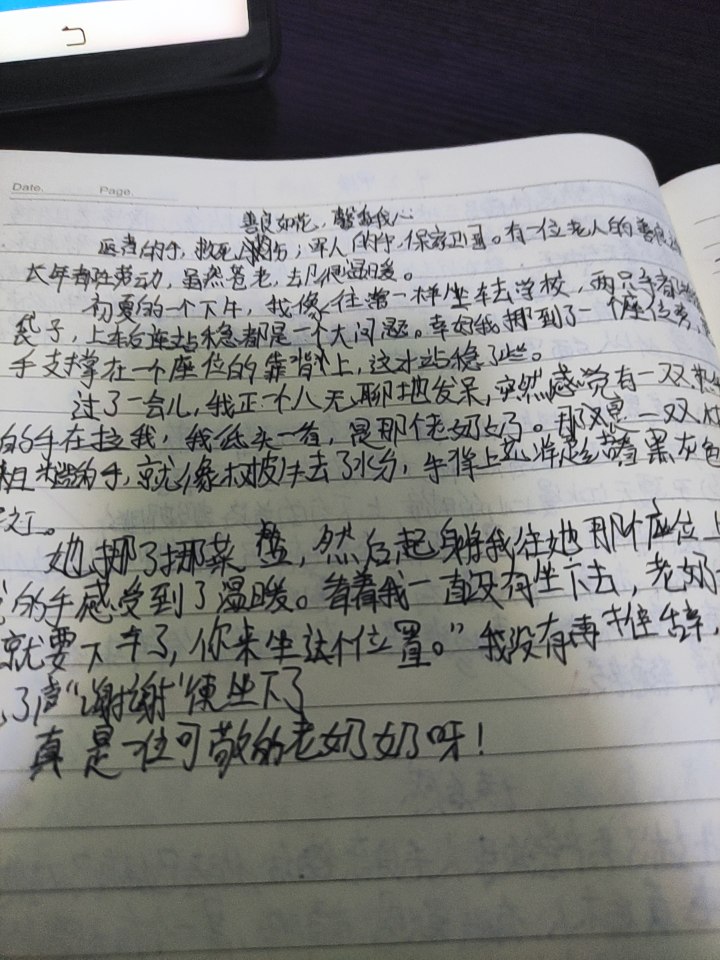 Date. Page.
善良如花，馨香我心
医者的手，救死扶伤；军人的手，保家卫国。有一位老人的善良
长年都在劳动，虽然苍老，却很温暖。
初夏的一个下午，我像往常一样坐车去学校，两只手都
袋子，上车后连站稳都是一个大问题。幸好我挪到了一个座位旁，
手支撑在一个座位的靠背上，这才站稳了些。
过了一会儿，我正一个人无聊地发呆，突然感觉有一双
的手在拉我，我低头一看，是那个老奶奶。那是一双
粗糙的手，就像树皮失去了水分，手掌上还洋溢着黑灰色

她挪了挪菜篮，然后起身将我往她那个座位上
的手感受到了温暖。看着我一直没有坐下去，老奶
就要下车了，你来坐这个位置。”我没有再推辞，
了声“谢谢”便坐下了
真是一位可敬的老奶奶呀！